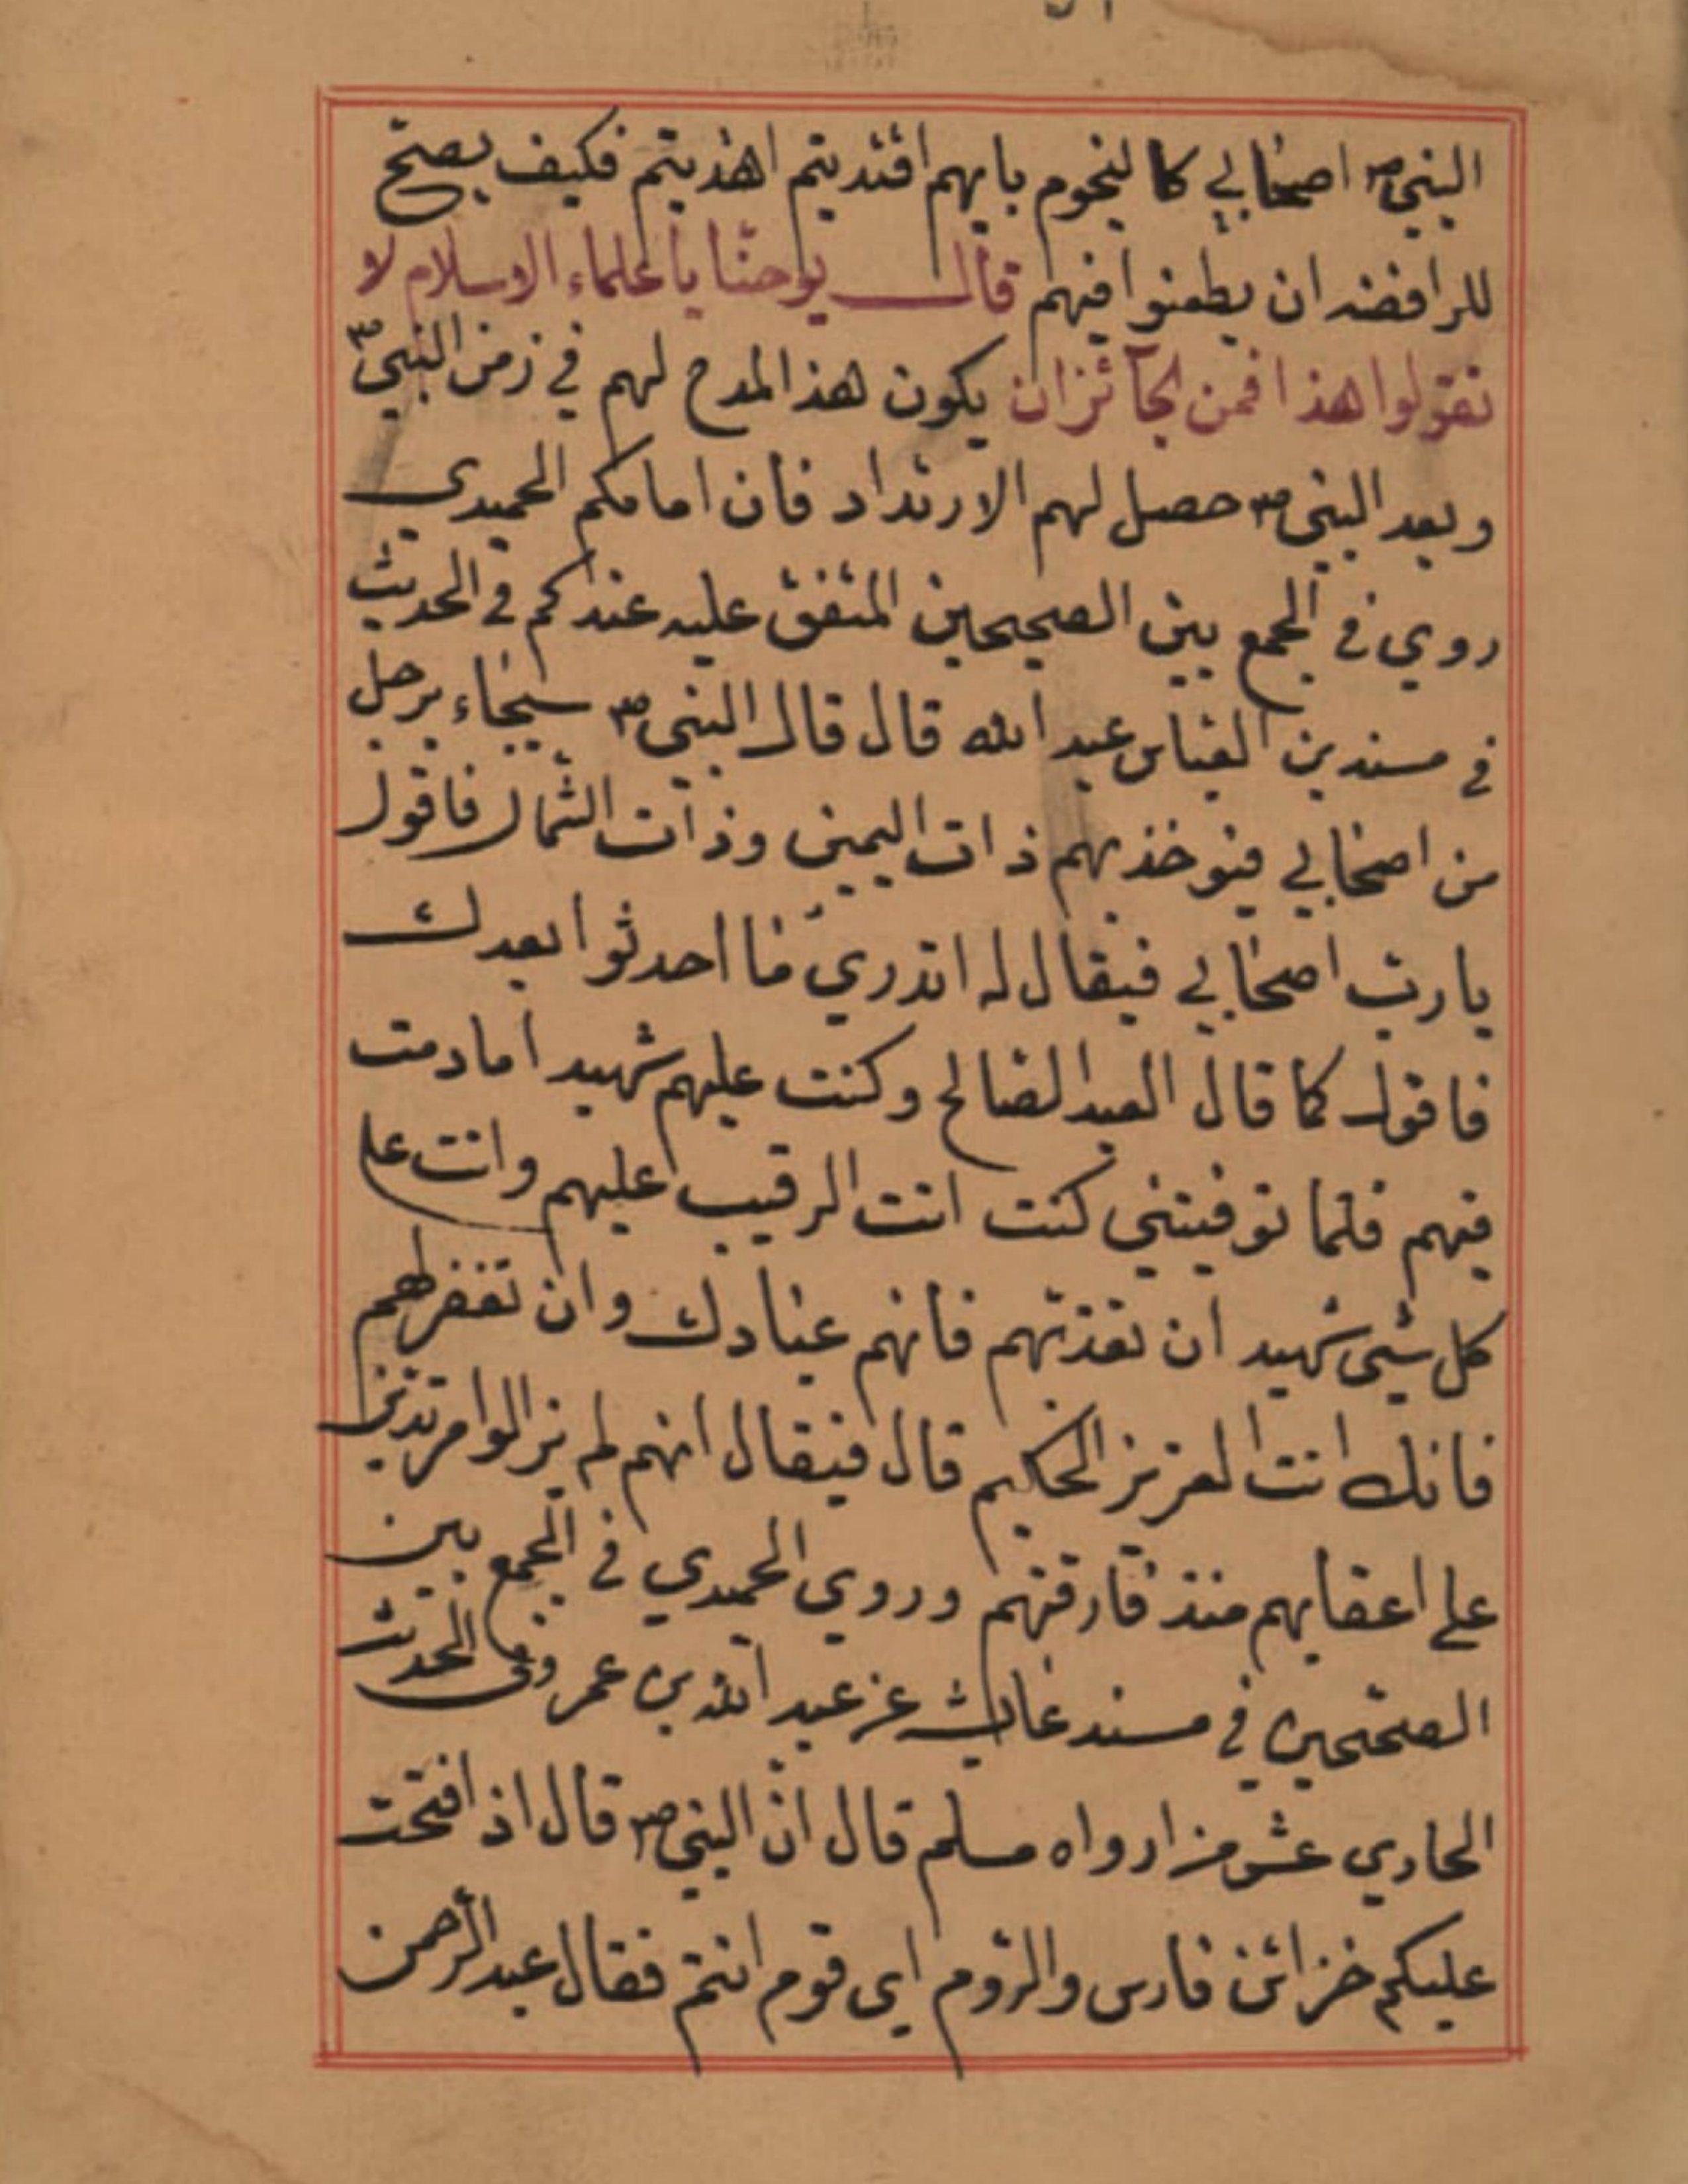 النبي ص اصحابي كالنجوم بايهم اقتديتم اهتديتم فكيف يصح
للرافضه ان يطعنوا فيهم قال يوحنا يا علماء الاسلام لا
تقولوا هذا فمن الجائز ان يكون هذا المدح لهم في زمن النبي ص
وبعد النبي ص حصل لهم الارتداد فان امامكم الحميدي
روي في الجمع بين الصحيحين المتفق عليه عندكم في الحديث
في مسند بن العباس عبد الله قال قال النبي ص سيجاء برجل
من اصحابي فيوخذ بهم ذات اليمين وذات الشمال فاقول
يا رب اصحابي فيقال له اتدري ما احدثوا بعدك
فاقول كما قال العبد الصالح وكنت عليهم شهيدا ما دمت
فيهم فلما توفيتني كنت انت الرقيب عليهم وانت على
كل شيئ شهيد ان تعذبهم فانهم عبادك وان تغفر لهم
فانك انت العزيز الحكيم قال فيقال انهم لم يزالوا مرتدين
على اعقابهم منذ فارقتهم وروي الحميدي في الجمع بين
الصحيحين في مسند عن عبد الله بن عمر وفي الحديث
الحادي عشر رواه مسلم قال ان النبي ص قال اذا فتحت
عليكم خزائن فارس والروم اي قوم انتم فقال عبد الرحمن